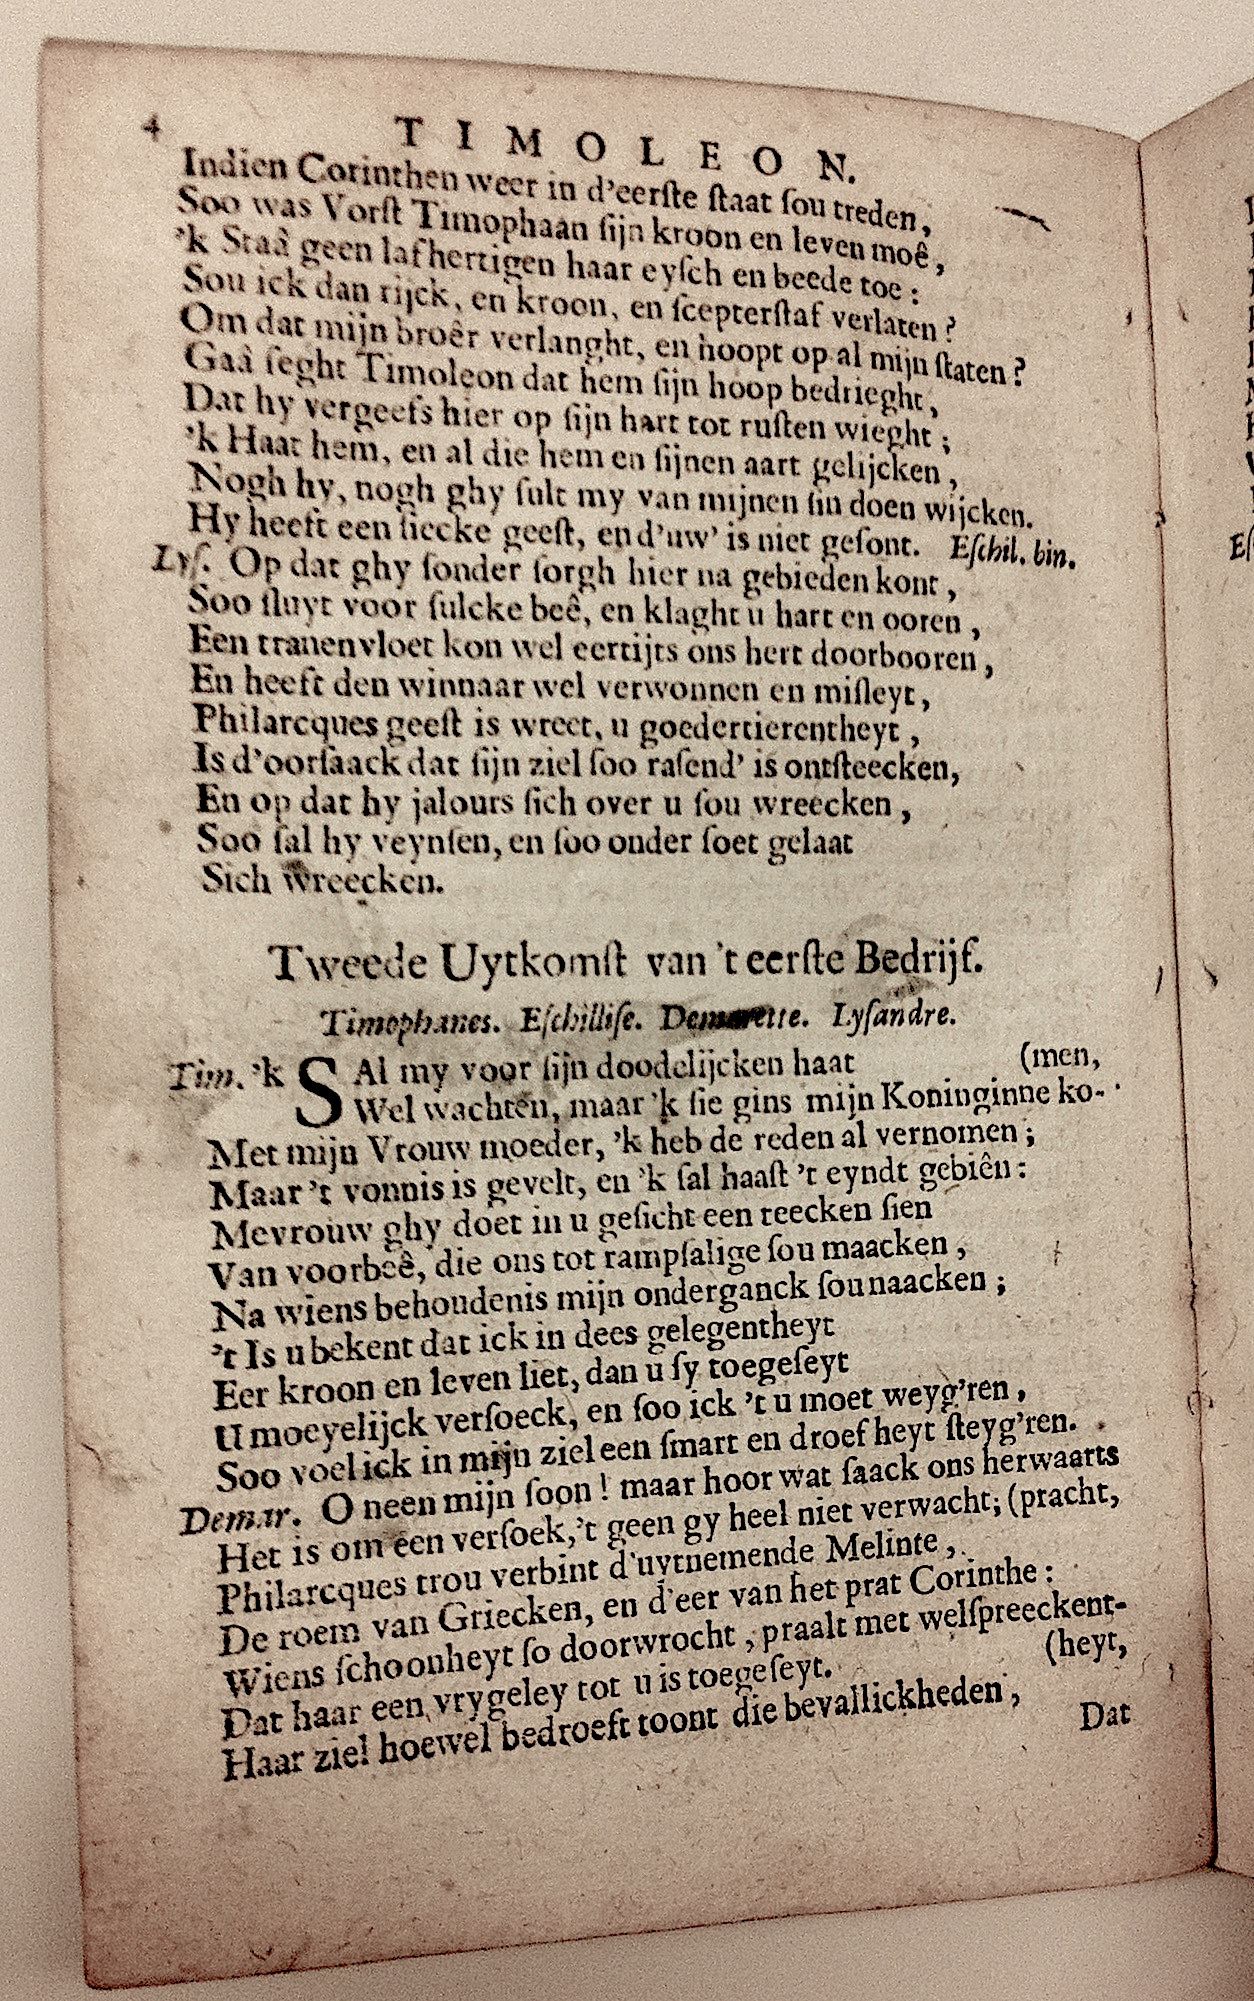 4 TIMOLEON.
Indien Corinthen weer in d'eerſte ſtaat ſou treden,
Soo was Vorſt Timophaan ſijn kroon en leven moê,
'k Staâ geen lafhertigen haar eyſch en beede toe:
Sou ick dan rijck, en kroon, en ſcepterſtaf verlaten?
Om dat mijn broêr verlanght, en hoopt op al mijn ſtaten?
Gaâ ſeght Timoleon dat hem ſijn hoop bedrieght,
Dat hy vergeefs hier op ſijn hart tot ruſten wieght;
'k Haat hem, en al die hem en ſijnen aart gelijcken,
Nogh hy, nogh ghy ſult my van mijnen ſin doen wijcken.
Hy heeft een ſiecke geeſt, en d'uw' is niet geſont. Eſchil. bin.
Lyſ. Op dat ghy ſonder ſorgh hier na gebieden kont,
Soo ſluyt voor ſulcke beê, en klaght u hart en ooren,
Een tranenvloet kon wel eertijts ons hert doorbooren,
En heeft den winnaar wel verwonnen en miſleyt,
Philarcques geeſt is wreet, u goedertierentheyt,
Is d'oorſaack dat ſijn ziel ſoo raſend' is ontſteecken,
En op dat hy jalours ſich over u ſou wreecken,
Soo ſal hy veynſen, en ſoo onder ſoet gelaat
Sich wreecken.
Tweede Uytkomſt van 't eerſte Bedrijf.
Timophanes. Eſchilliſe. Demarette. Lyſandre.
Tim. 'k SAl my voor ſijn doodelijcken haat (men,
Wel wachten, maar 'k ſie gins mijn Koninginne ko-
Met mijn Vrouw moeder, 'k heb de reden al vernomen;
Maar 't vonnis is gevelt, en 'k ſal haaſt 't eyndt gebiên:
Mevrouw ghy doet in u geſicht een teecken ſien
Van voorbeê, die ons tot rampſalige ſou maacken,
Na wiens behoudenis mijn onderganck ſou naacken;
't Is u bekent dat ick in dees gelegentheyt
Eer kroon en leven liet, dan u ſy toegeſeyt
U moeyelijck verſoeck, en ſoo ick 't u moet weyg'ren,
Soo voel ick in mijn ziel een ſmart en droefheyt ſteyg'ren.
Demar. O neen mijn ſoon! maar hoor wat ſaack ons herwaarts
Het is om een verſoek, 't geen gy heel niet verwacht; (pracht,
Philarcques trou verbint d'uytnemende Melinte,
De roem van Griecken, en d'eer van het prat Corinthe:
Wiens ſchoonheyt ſo doorwrocht, praalt met welſpreeckent-
Dat haar een vrygeley tot u is toegeſeyt. (heyt,
Haar ziel hoewel bedroeft toont die bevallickheden,
Dat